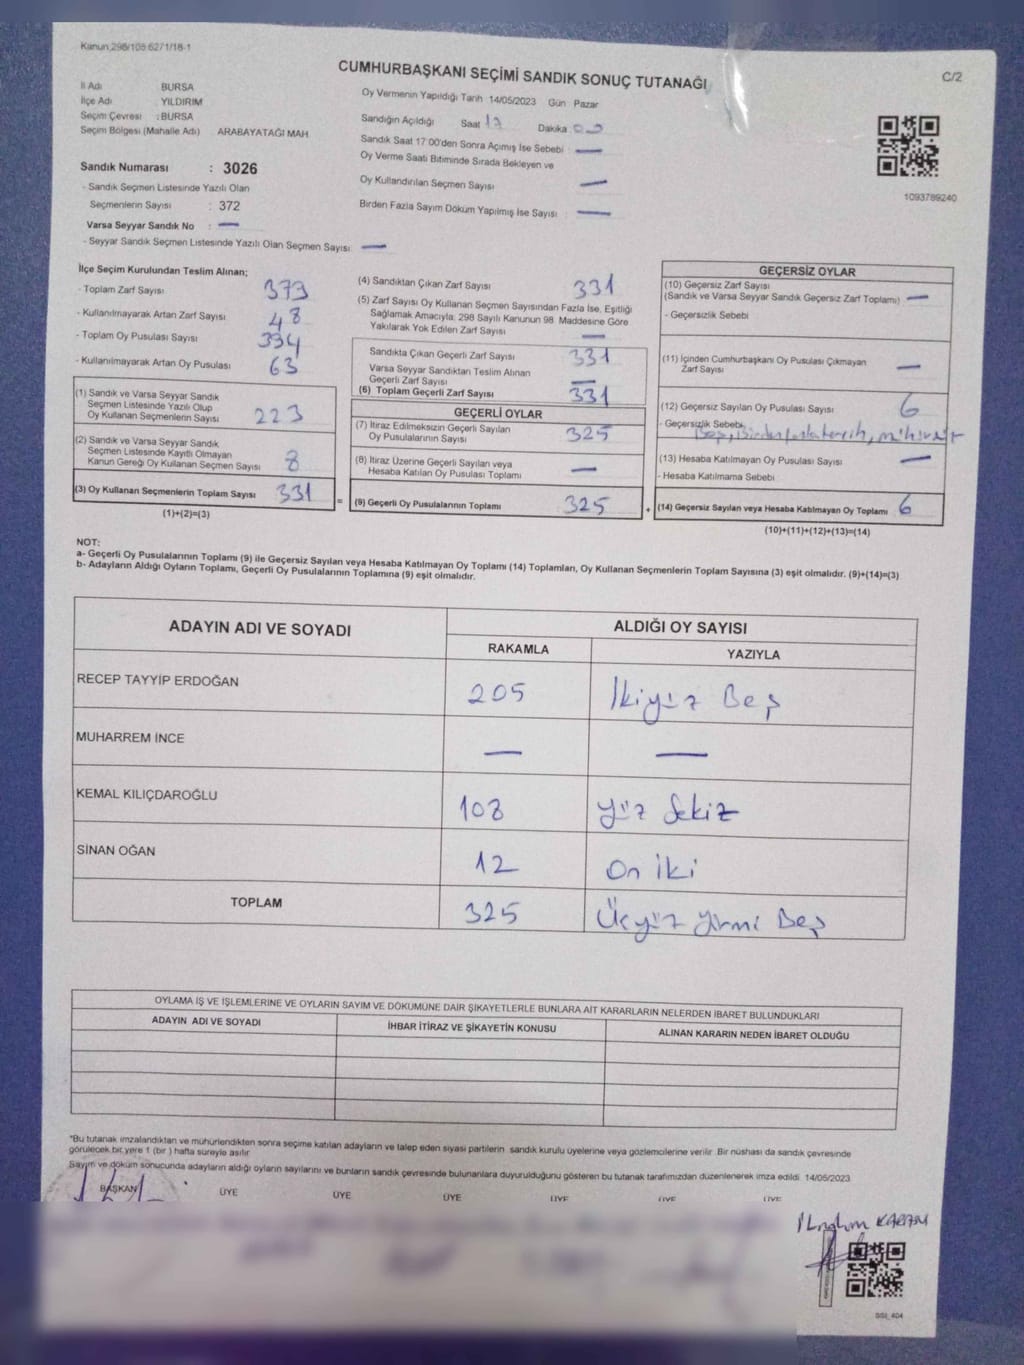 Kanun,298/105 62/1/18-1
C/2
CUMHURBAŞKANI SEÇİMİ SANDIK SONUÇ TUTANAĞI
İl Adı BURSA
İlçe Adı YILDIRIM
Seçim Çevresi : BURSA
Seçim Bölgesi (Mahalle Adı) ARABAYATAĞI MAH
Sandık Numarası : 3026
- Sandık Seçmen Listesinde Yazılı Olan
Seçmenlerin Sayısı : 372
Varsa Seyyar Sandık No : —
- Seyyar Sandık Seçmen Listesinde Yazılı Olan Seçmen Sayısı: —
Oy Vermenin Yapıldığı Tarih 14/05/2023 Gün Pazar
Sandığın Açıldığı Saat 17 Dakika : 00
Sandık Saat 17:00'den Sonra Açımış İse Sebebi : —
Oy Verme Saati Bitiminde Sırada Bekleyen ve
Oy Kullandırılan Seçmen Sayısı —
Birden Fazla Sayım Döküm Yapılmış İse Sayısı : —
1093789240
İlçe Seçim Kurulundan Teslim Alınan;
- Toplam Zarf Sayısı 373
- Kullanılmayarak Artan Zarf Sayısı 48
- Toplam Oy Pusulası Sayısı 394
- Kullanılmayarak Artan Oy Pusulası 63
(1) Sandık ve Varsa Seyyar Sandık
Seçmen Listesinde Yazılı Olup
Oy Kullanan Seçmenlerin Sayısı 223
(2) Sandık ve Varsa Seyyar Sandık
Seçmen Listesinde Kayıtlı Olmayan
Kanun Gereği Oy Kullanan Seçmen Sayısı 8
(3) Oy Kullanan Seçmenlerin Toplam Sayısı 331
(1)+(2)=(3)
(4) Sandıktan Çıkan Zarf Sayısı 331
(5) Zarf Sayısı Oy Kullanan Seçmen Sayısından Fazla İse, Eşitliği
Sağlamak Amacıyla; 298 Sayılı Kanunun 98. Maddesine Göre
Yakılarak Yok Edilen Zarf Sayısı —
Sandıkta Çıkan Geçerli Zarf Sayısı 331
Varsa Seyyar Sandıktan Teslim Alınan
Geçerli Zarf Sayısı —
(6) Toplam Geçerli Zarf Sayısı 331
GEÇERLİ OYLAR
(7) İtiraz Edilmeksizin Geçerli Sayılan
Oy Pusulalarının Sayısı 325
(8) İtiraz Üzerine Geçerli Sayılan veya
Hesaba Katılan Oy Pusulası Toplamı —
= (9) Geçerli Oy Pusulalarının Toplamı 325 +
GEÇERSİZ OYLAR
(10) Geçersiz Zarf Sayısı
(Sandık ve Varsa Seyyar Sandık Geçersiz Zarf Toplamı) —
- Geçersizlik Sebebi
(11) İçinden Cumhurbaşkanı Oy Pusulası Çıkmayan
Zarf Sayısı —
(12) Geçersiz Sayılan Oy Pusulası Sayısı 6
- Geçersizlik Sebebi
Boş, Birden fazla tercih,
(13) Hesaba Katılmayan Oy Pusulası Sayısı —
- Hesaba Katılmama Sebebi
(14) Geçersiz Sayılan veya Hesaba Katılmayan Oy Toplamı 6
(10)+(11)+(12)+(13)=(14)
NOT:
a- Geçerli Oy Pusulalarının Toplamı (9) ile Geçersiz Sayılan veya Hesaba Katılmayan Oy Toplamı (14) Toplamları, Oy Kullanan Seçmenlerin Toplam Sayısına (3) eşit olmalıdır. (9)+(14)=(3)
b- Adayların Aldığı Oyların Toplamı, Geçerli Oy Pusulalarının Toplamına (9) eşit olmalıdır.
ADAYIN ADI VE SOYADI ALDIĞI OY SAYISI
RAKAMLA YAZIYLA
RECEP TAYYİP ERDOĞAN 205 İkiyüz Beş
MUHARREM İNCE — —
KEMAL KILIÇDAROĞLU 108 yüz Sekiz
SİNAN OĞAN 12 On iki
TOPLAM 325 Üçyüz yirmi Beş
OYLAMA İŞ VE İŞLEMLERİNE VE OYLARIN SAYIM VE DÖKÜMÜNE DAİR ŞİKAYETLERLE BUNLARA AİT KARARLARIN NELERDEN İBARET BULUNDUKLARI
ADAYIN ADI VE SOYADI İHBAR İTİRAZ VE ŞİKAYETİN KONUSU ALINAN KARARIN NEDEN İBARET OLDUĞU
*Bu tutanak imzalandıktan ve mühürlendikten sonra seçime katılan adayların ve talep eden siyasi partilerin sandık kurulu üyelerine veya gözlemcilerine verilir. Bir nüshası da sandık çevresinde
görülecek bir yere 1 (bir ) hafta süreyle asılır.
Sayım ve döküm sonucunda adayların aldığı oyların sayılarını ve bunların sandık çevresinde bulunanlara duyurulduğunu gösteren bu tutanak tarafımızdan düzenlenerek imza edildi. 14/05/2023
BAŞKAN ÜYE ÜYE ÜYE ÜYE ÜYE ÜYE